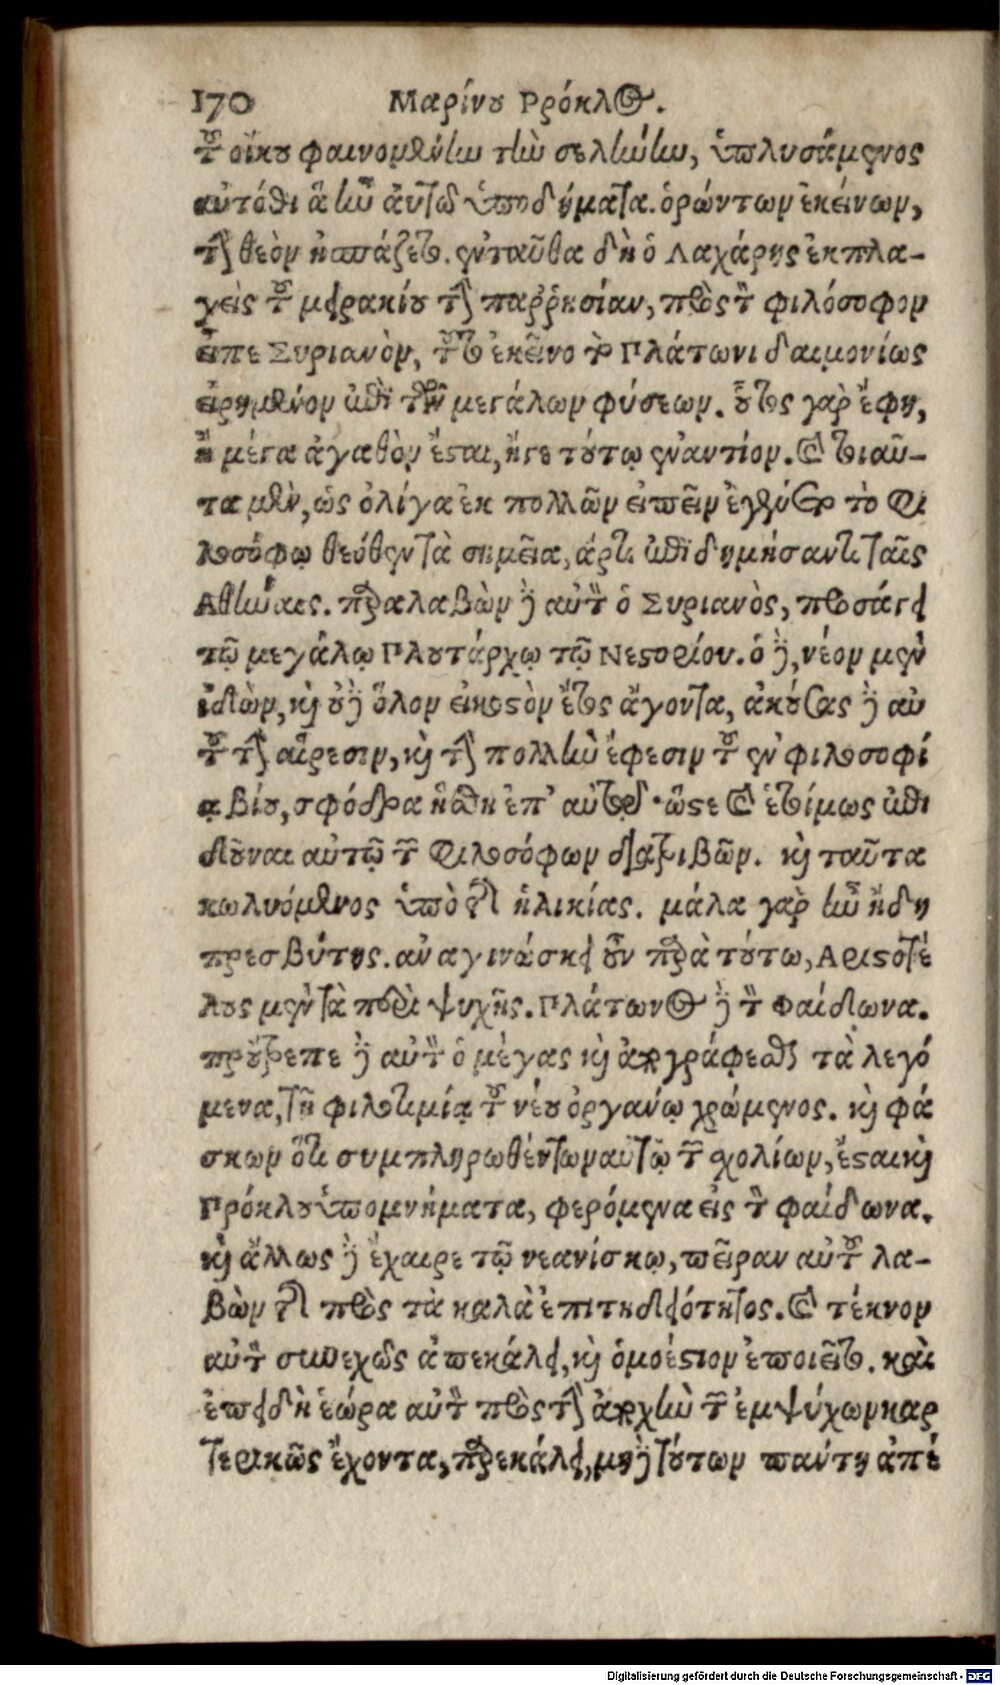 170 Μαρίνου Πρόκλος.
τοῦ οἴκου φαινομένην τὴν σελήνην, ὑπολυσάμενος
αὐτόθι ἃ ἦν αὐτῷ ὑποδήματα. ὁρώντων ἐκείνων,
τὴν θεὸν ἠσπάζετο. ἐνταῦθα δὴ ὁ Λαχάρης ἐκπλα-
γεὶς τοῦ μειρακίου τὴν παῤῥησίαν, πρὸς τὸν φιλόσοφον
εἶπε Συριανὸν, τοῦτο ἐκεῖνο τὸ Πλάτωνι δαιμονίως
εἰρημένον ἐπὶ τῶν μεγάλων φύσεων. οὗτος γὰρ ἔφη,
ἢ μέγα ἀγαθὸν ἔσται, ἤγε τούτῳ ἐναντίον. καὶ τοιαῦ-
τα μὲν, ὡς ὀλίγα ἐκ πολλῶν εἰπεῖν ἐγένετο τῷ Φι
λοσόφῳ θεόθεν τὰ σημεῖα, ἄρτι ἐπιδημήσαντι ταῖς
Αθήναις. παραλαβὼν δὲ αὐτὸν ὁ Συριανὸς, προσάγει
τῷ μεγάλῳ Πλουτάρχῳ τῷ Νεστορίου. ὁ δὲ, νέον μὲν
ἰδὼν, καὶ οὐδὲ ὅλον εἰκοστὸν ἔτος ἄγοντα, ἀκούσας δὲ αὐ
τοῦ τὴν αἵρεσιν, καὶ τὴν πολλὴν ἔφεσιν τοῦ ἐν φιλοσοφί
ᾳ βίου, σφόδρα ἥσθη ἐπ' αὐτῷ· ὥστε καὶ ἑτοίμως ἐπι
δοῦναι αὐτῷ τῶν Φιλοσόφων διατριβῶν. καὶ ταῦτα
κωλυόμενος ὑπὸ τῆς ἡλικίας. μάλα γὰρ ἦν ἤδη
πρεσβύτης. ἀναγινώσκει οὖν παρὰ τούτῳ, Αριστοτέ
λους μὲν τὰ περὶ ψυχῆς. Πλάτωνος δὲ τὸν Φαίδωνα.
προὔτρεπε δὲ αὐτὸν ὁ μέγας καὶ ἀπογράφεσθαι τὰ λεγό
μενα, τῇ φιλοτιμίᾳ τοῦ νέου ὀργάνῳ χρώμενος. καὶ φά
σκων ὅτι συμπληρωθέντων αὐτῷ τῶν σχολίων, ἔσται καὶ
Πρόκλου ὑπομνήματα, φερόμενα εἰς τὸν φαίδωνα.
καὶ ἄλλως δὲ ἔχαιρε τῷ νεανίσκῳ, πεῖραν αὐτοῦ λα-
βὼν τῆς πρὸς τὰ καλὰ ἐπιτηδειότητος. καὶ τέκνον
αὐτὸν συνεχῶς ἀπεκάλει, καὶ ὁμοέστιον ἐποιεῖτο. καὶ
ἐπειδὴ ἑώρα αὐτὸν πρὸς τὴν ἀποχὴν τῶν ἐμψύχων καρ
τερικῶς ἔχοντα, παρεκάλει, μηδὲ τούτων παύτη ἀπέ
Digitalisierung gefördert durch die Deutsche Forschungsgemeinschaft - DFG